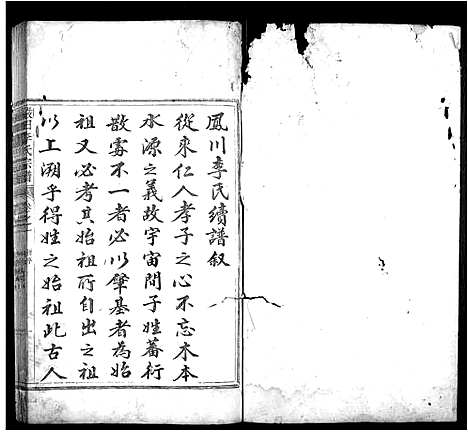 鳳川李氏續譜叙
從來仁人孝子之心不忘木本
水源之義故宇宙間子姓蕃衍
散處不一者必以肇基者為始
祖又必考其始祖所自出之祖
以上溯乎得姓之始祖此古人
李氏宗譜